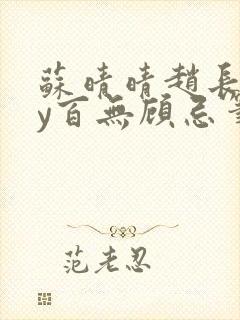 蘇晴晴趙長
y百無顧忌筆
范老忍